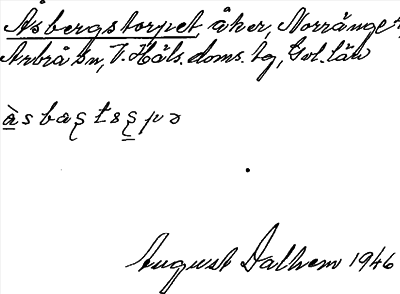 Åsbergstorpet, åker, Norränge,
Arbrå sn, V. Häls. doms. tg, Gvl. län
àsbaʂtsʂpə
August Dalhem 1946